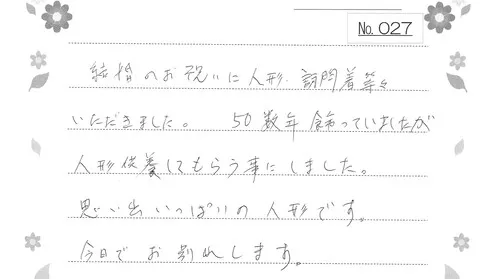 No. 027
結婚のお祝いに人形、訪問着等々
いただきました。 50数年飾っていましたが
人形供養してもらう事にしました。
思い出いっぱいの人形です。
今日でお別れします。